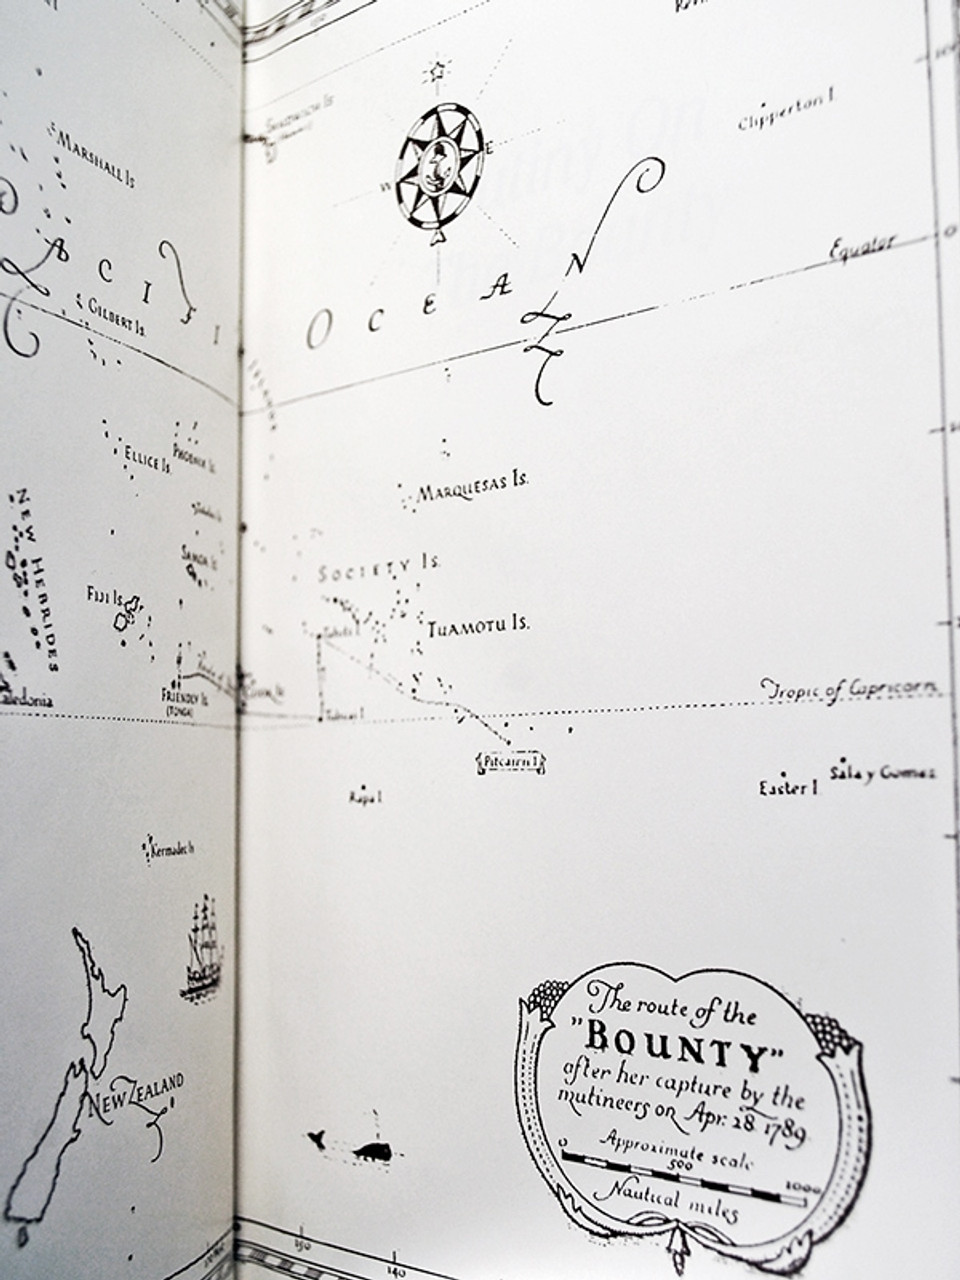 MARSHALL Is
Clipperton I.
E
W
Equator
0
OCEAN
GILBERT Is.
ELLICE Is.
PHOENIX Is.
MARQUESAS Is.
NEW HEBRIDES
SAMOA Is.
SOCIETY Is.
FIJI Is.
TUAMOTU Is.
Tahiti I.
FRIENDLY Is.
(TONGA)
Tropic of Capricorn
Tubuai I
Pitcairn I.
Rapa I
Easter I
Sala y Gomez
Kermadec Is
NEW ZEALAND
The route of the
"BOUNTY"
after her capture by the
mutineers on Apr. 28. 1789.
Approximate scale
0 500 1000
Nautical miles
150
140